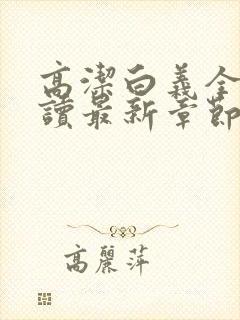 高潔白義全
讀最新章節
高麗萍